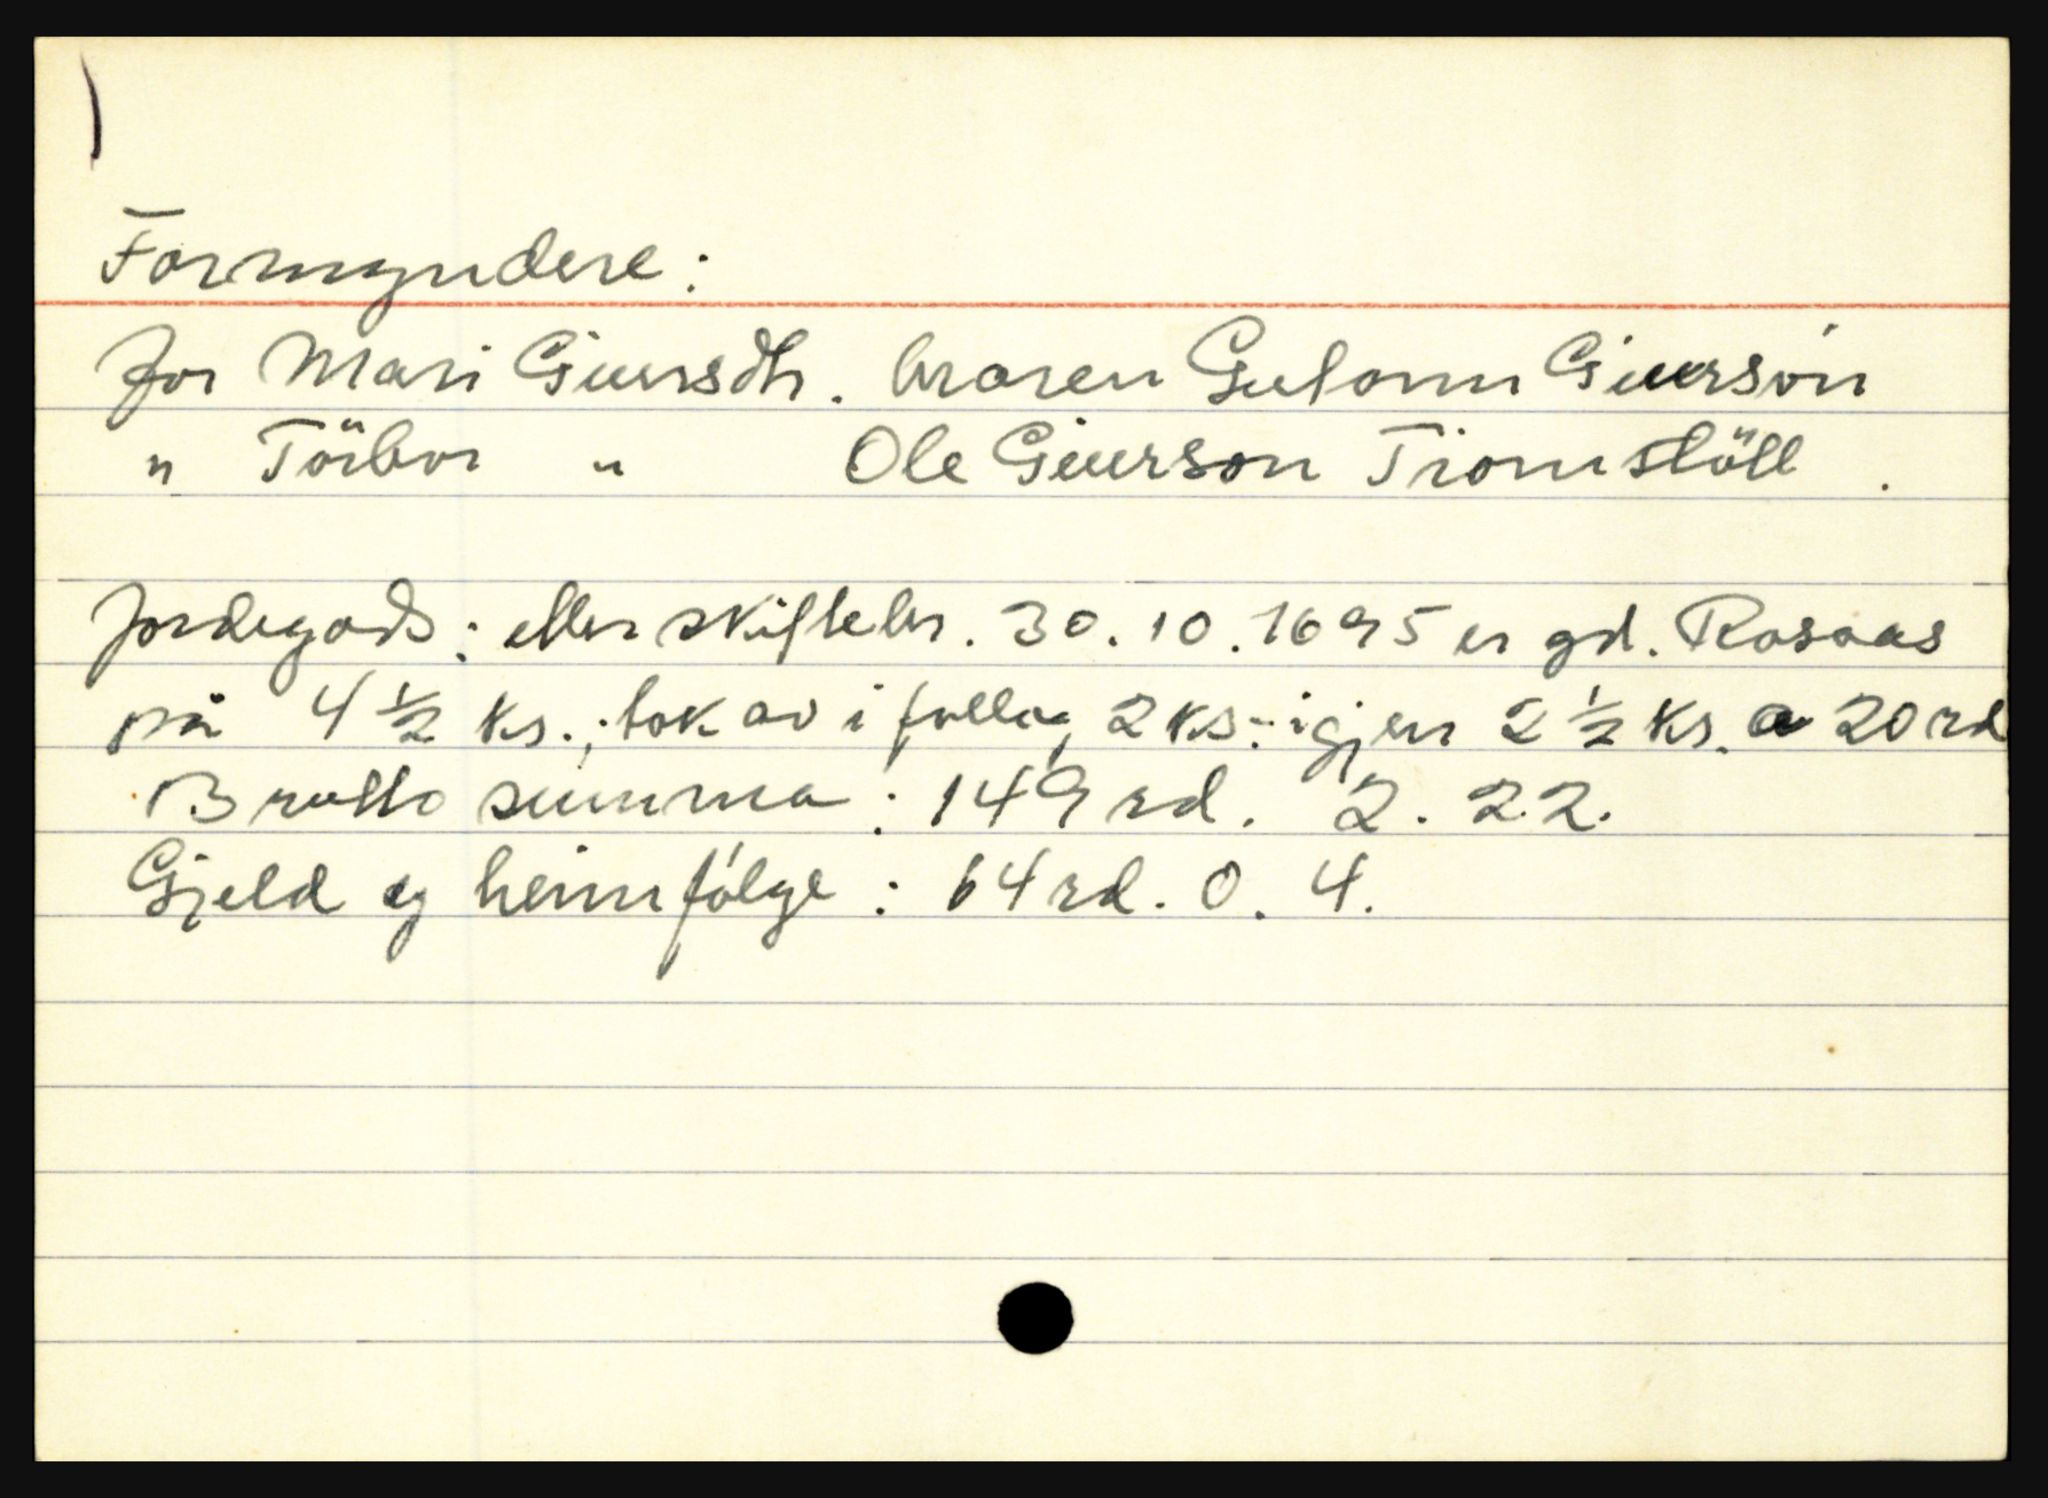 Formyndere:
for Mari Giursdtr. broren Gulonn Giursón
" Törbor " Ole Giurson Tiomstöll.
Jordegods: etter skiftebr. 30.10.1695 er gd. Rosaas
på 4 1/2 ks.; tok av i follog 2 ks. igjen 2 1/2 ks. a 20 rd
Brutto summa: 149 rd. 2. 22.
Gjeld og heimfólge: 64 rd. 0. 4.